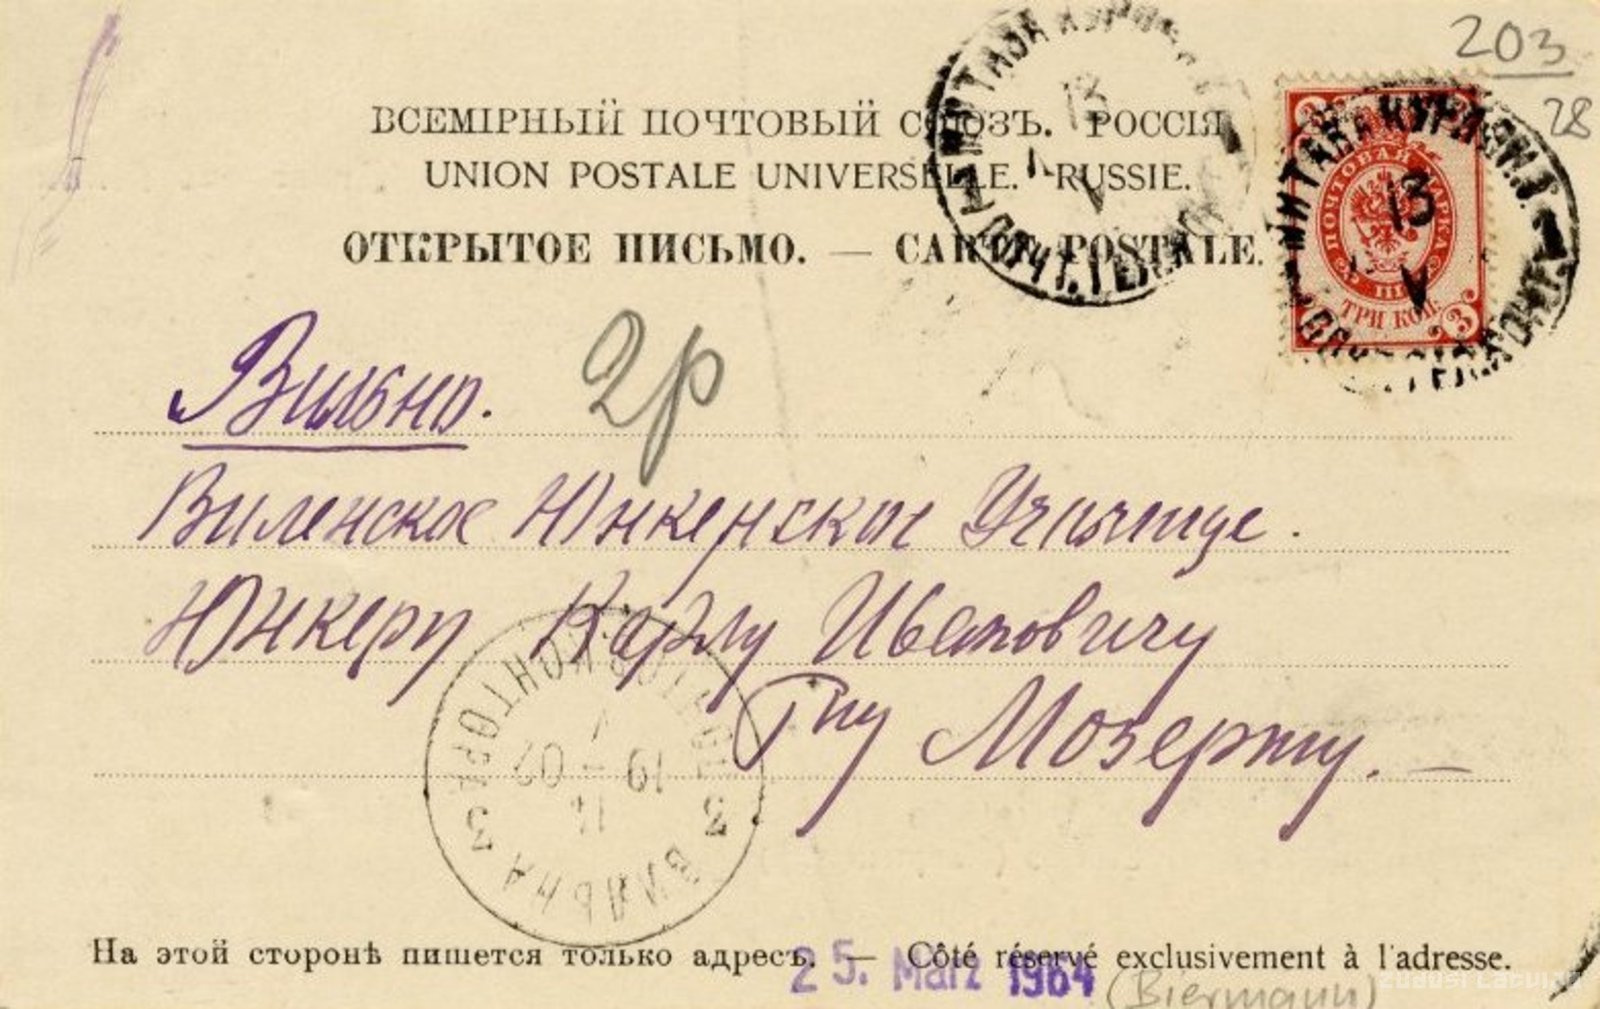 203
28
ВСЕМІРНЫЙ ПОЧТОВЫЙ СОЮЗЪ. РОССІЯ
UNION POSTALE UNIVERSELLE. RUSSIE.
ОТКРЫТОЕ ПИСЬМО. — CARTE POSTALE.
МИТАВА КУРЛЯН.
13
V
ПОЧТОВАЯ МАРКА
ТРИ КОП.
3
МИТАВА КУРЛЯН. Г.
13
V
Вильно.
2р
Виленское Юнкерское Училище.
Юнкеру Карлу Ивановичу
Гну Мозерту. —
ВИЛЬНА
КОНТОРА
3 3
14
19 02
На этой сторонѣ пишется только адресъ. — Côté réservé exclusivement à l'adresse.
25. März 1964
(Biermann)
zudusilatvija